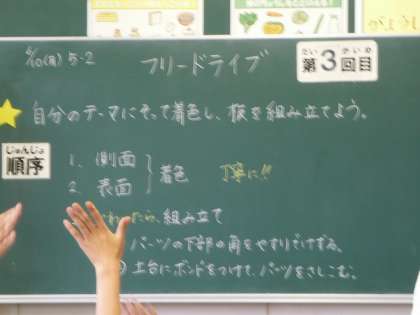 5/10(月) 5-2
フリードライブ
だい かいめ
第3回目
自分のテーマにそって着色し、板を組み立てよう。
じゅんじょ
順序
1. 側面
2. 表面
着色
丁寧に!!
わったら、組み立て
パーツの下部の角をやすりでけずる。
土台にボンドをつけて、パーツをさしこむ。
がようし